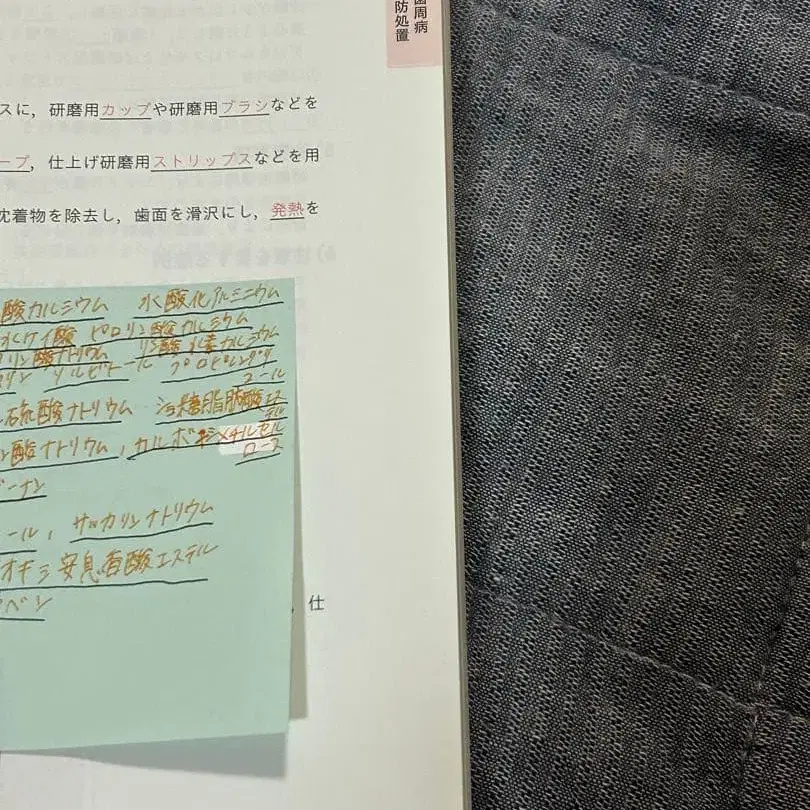 歯周病
防処置
スに，研磨用カップや研磨用ブラシなどを
ープ，仕上げ研磨用ストリップスなどを用
沈着物を除去し，歯面を滑沢にし，発熱を
酸カルシウム　水酸化アルミニウム
水ケイ酸　ピロリン酸カルシウム
リン酸ナトリウム　リン酸水素カルシウム
リン　ソルビトール　プロピレングリ
コール
硫酸ナトリウム　ショ糖脂肪酸エス
テル
ン酸ナトリウム，カルボキシメチルセル
ロース
ーナン
ール，サッカリンナトリウム
オキシ安息香酸エステル
ベン
仕